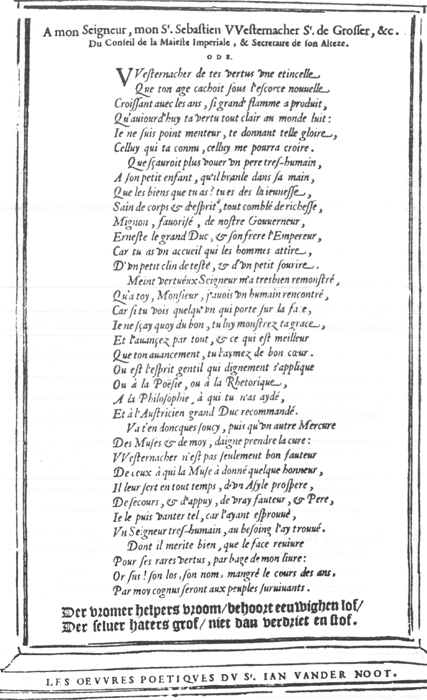 A mon Seigneur, mon Sr. Sebastien VVesternacher Sr. de Grosser, &c.
Du Conseil de la Maieste Imperiale, & Secretaire de son Alteze.
ODE.
VVesternacher de tes vertus vne etincelle,
Que ton age cachoit sous l'escorce nouuelle
Croissant auec les ans, si grand flamme a produit,
Qu'auiourd'huy ta vertu tout clair au monde luit:
Ie ne suis point menteur, te donnant telle gloire,
Celluy qui ta connu, celluy me pourra croire.
Que sçauroit plus vouer vn pere tres-humain,
A son petit enfant, qu'il branle dans sa main,
Que les biens que tu as? tu es des la ieunesse,
Sain de corps & d'esprit, tout comblé de richesse,
Mignon, fauorisé, de nostre Gouuerneur,
Erneste le grand Duc, & son frere l'Empereur,
Car tu as vn accueil qui les hommes attire,
D'vn petit clin de teste, & d'vn petit sourire.
Meint vertuëux Seigneur m'a tresbien remonstré,
Qu'a toy, Monsieur, j'auois vn humain rencontré,
Car si tu vois quelqu'vn qui porte sur la face,
Ie ne sçay quoy du bon, tu luy monstrez ta grace,
Et l'auançez par tout, & ce qui est meilleur
Que ton auancement, tu l'aymez de bon cœur.
Ou est l'esprit gentil qui dignement s'applique
Ou à la Poësie, ou à la Rhetorique,
A la Philosophie, à qui tu n'as aydé,
Et à l'Austricien grand Duc recommandé.
Va t'en doncques soucy, puis qu'vn autre Mercure
Des Muses & de moy, daigne prendre la cure:
VVesternacher n'est pas seulement bon fauteur
De ceux à qui la Muse à donné quelque honneur,
Il leur sert en tout temps, d'vn Asyle prospere,
De secours, & d'appuy, de vray fauteur, & Pere,
Ie le puis vanter tel, car l'ayant esprouué,
Vn Seigneur tres-humain, au besoing l'ay trouué.
Dont il merite bien, que le face reuiure
Pour ses rares vertus, par bage de mon liure:
Or sus! son los, son nom, mangré le cours des ans,
Par moy cognus seront aux peuples suruiuants.
Der vromer helpers vroom/ behoort eeuwighen lof/
Der seluer haters grof/ niet dan verdriet en stof.
LES OEVVRES POETIQVES DV Sr. IAN VANDER NOOT.